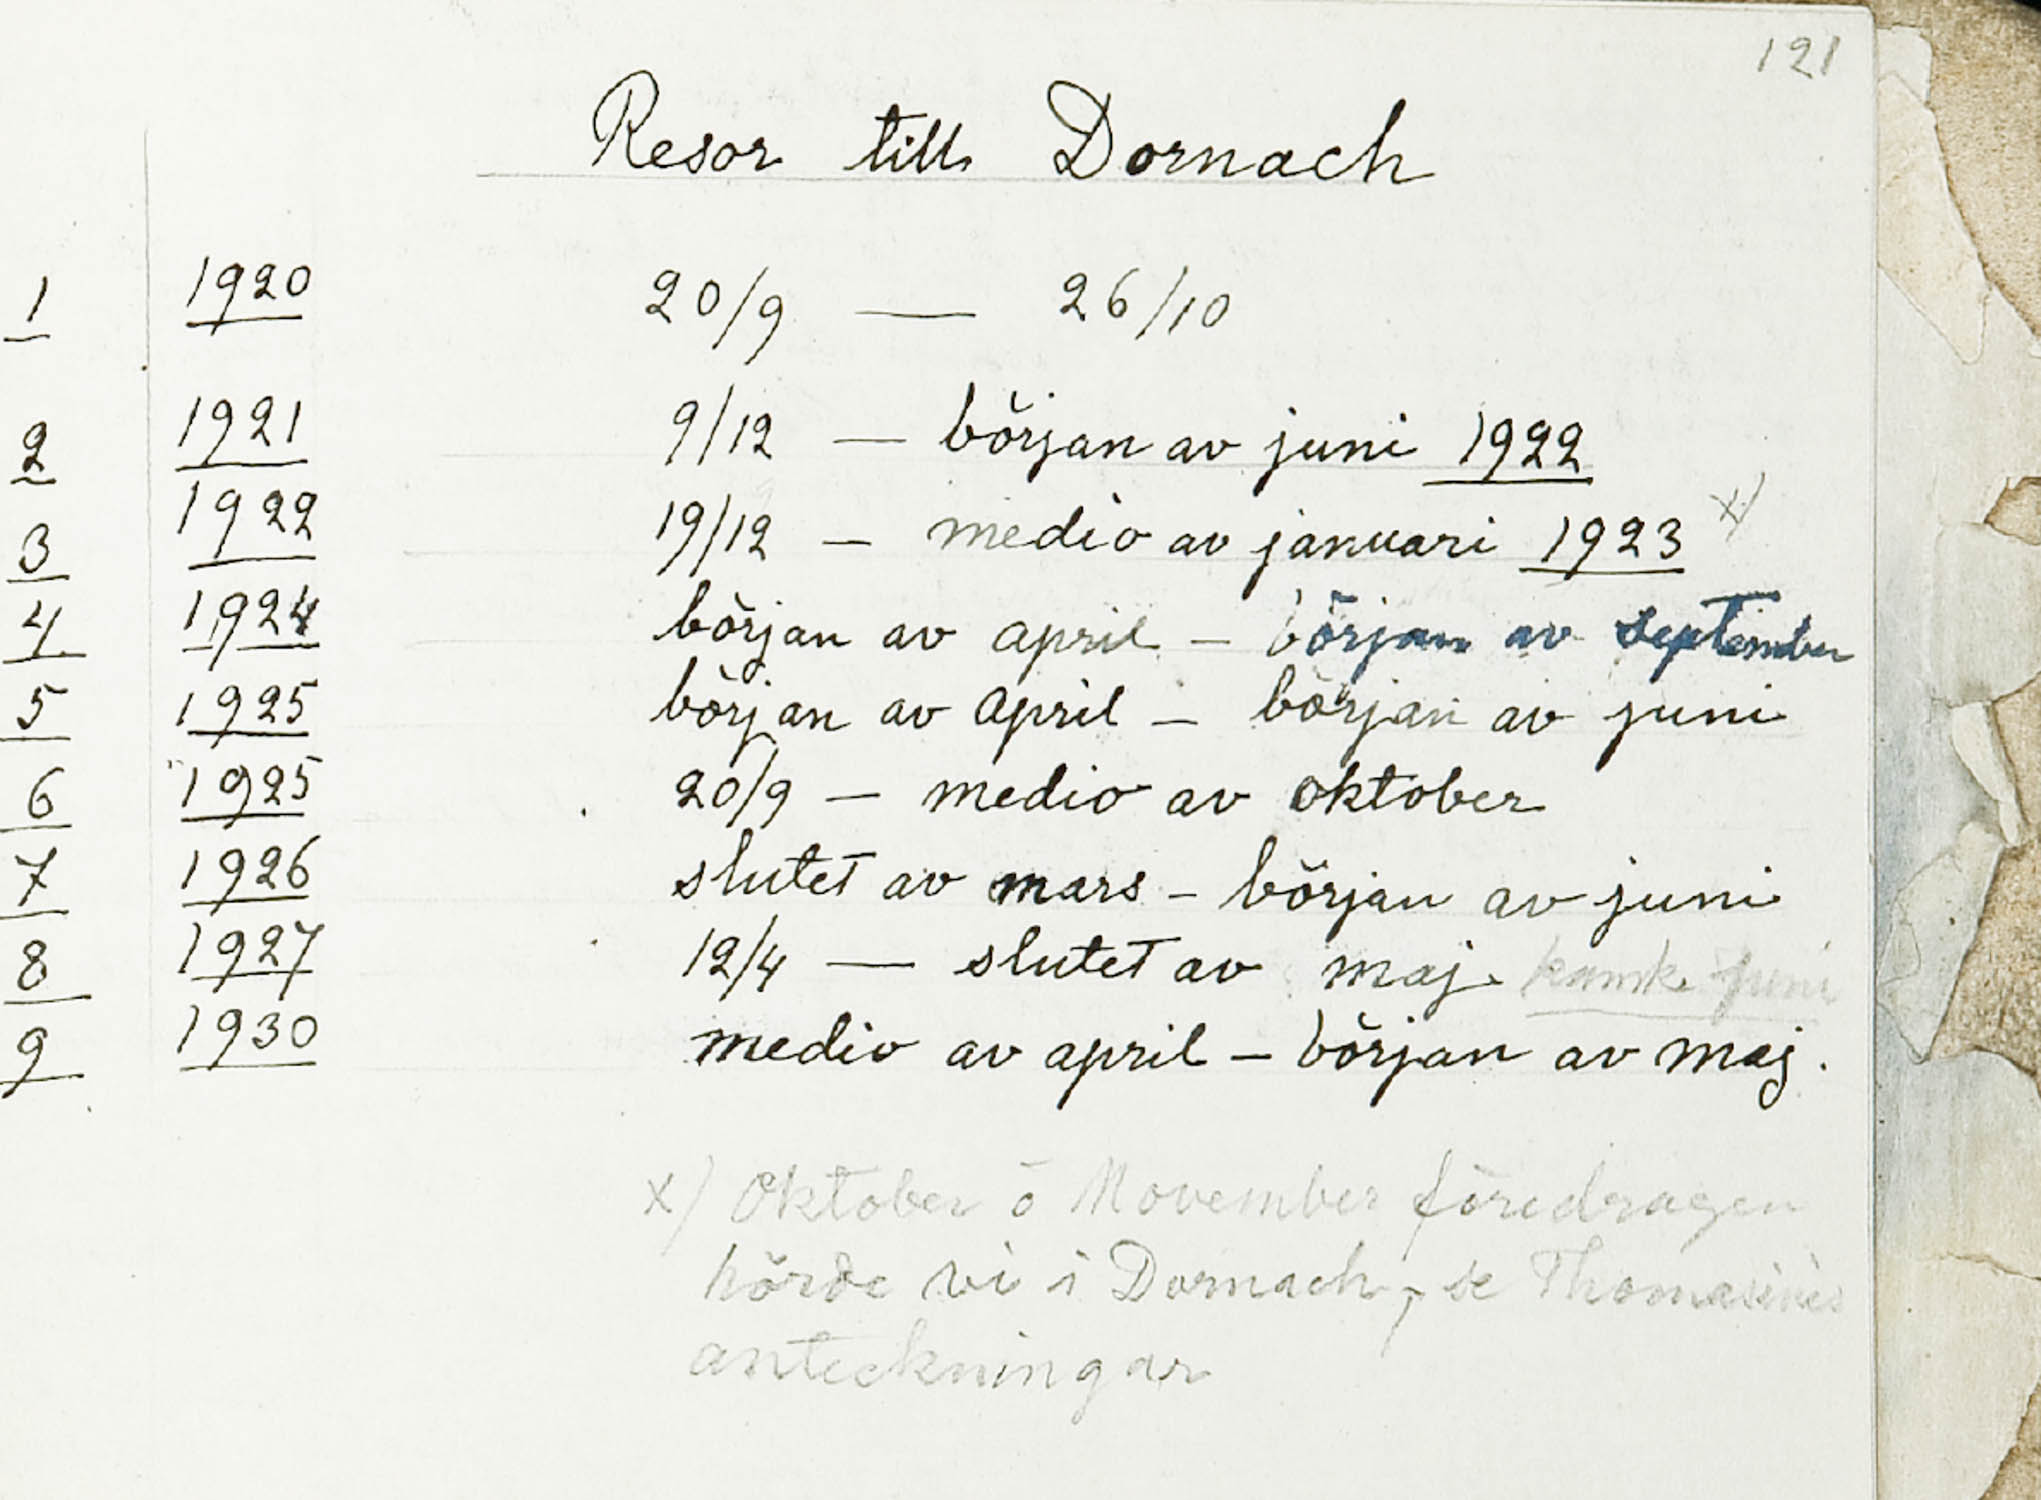 121
Resor till Dornach
1 1920 20/9 — 26/10
2 1921 9/12 — början av juni 1922
3 1922 19/12 — medio av januari 1923 x)
4 1924 början av april – början av september
5 1925 början av april – början av juni
6 1925 20/9 – medio av oktober
7 1926 slutet av mars – början av juni
8 1927 12/4 — slutet av maj juni
9 1930 medio av april – början av maj.
x) Oktober o November föredragen
hörde vi i Dornach, se
anteckningar